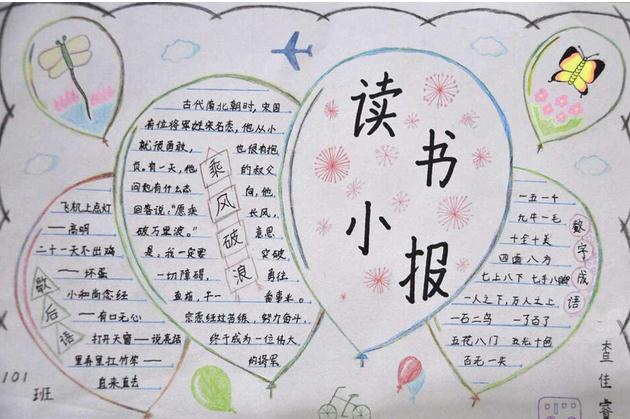 读书小报
古代南北朝时,宋国
有位将军姓宗名悫,他从小
就很勇敢, 也很有抱
负,有一天,他 的叔父
问他有什么志 向,他
回答说:“愿乘 长风,
破万里浪。” 意思
是,我一定要 突破
一切障碍, 勇往
直前,干一 番事业。
宗悫经过苦练,努力奋斗,
终于成为一位伟大
的将军
乘风破浪
飞机上点灯
——高明
二十一天不出鸡
——坏蛋
小和尚念经
——有口无心
打开天窗——说亮话
里弄里扛竹竿——
直来直去
歇后语
一五一十
九牛一毛
十全十美
四面八方
七上八下 七手八脚
一人之下,万人之上
一石二鸟 一了百了
五花八门 五光十色
百无一失
数字成语
101
班
查佳睿